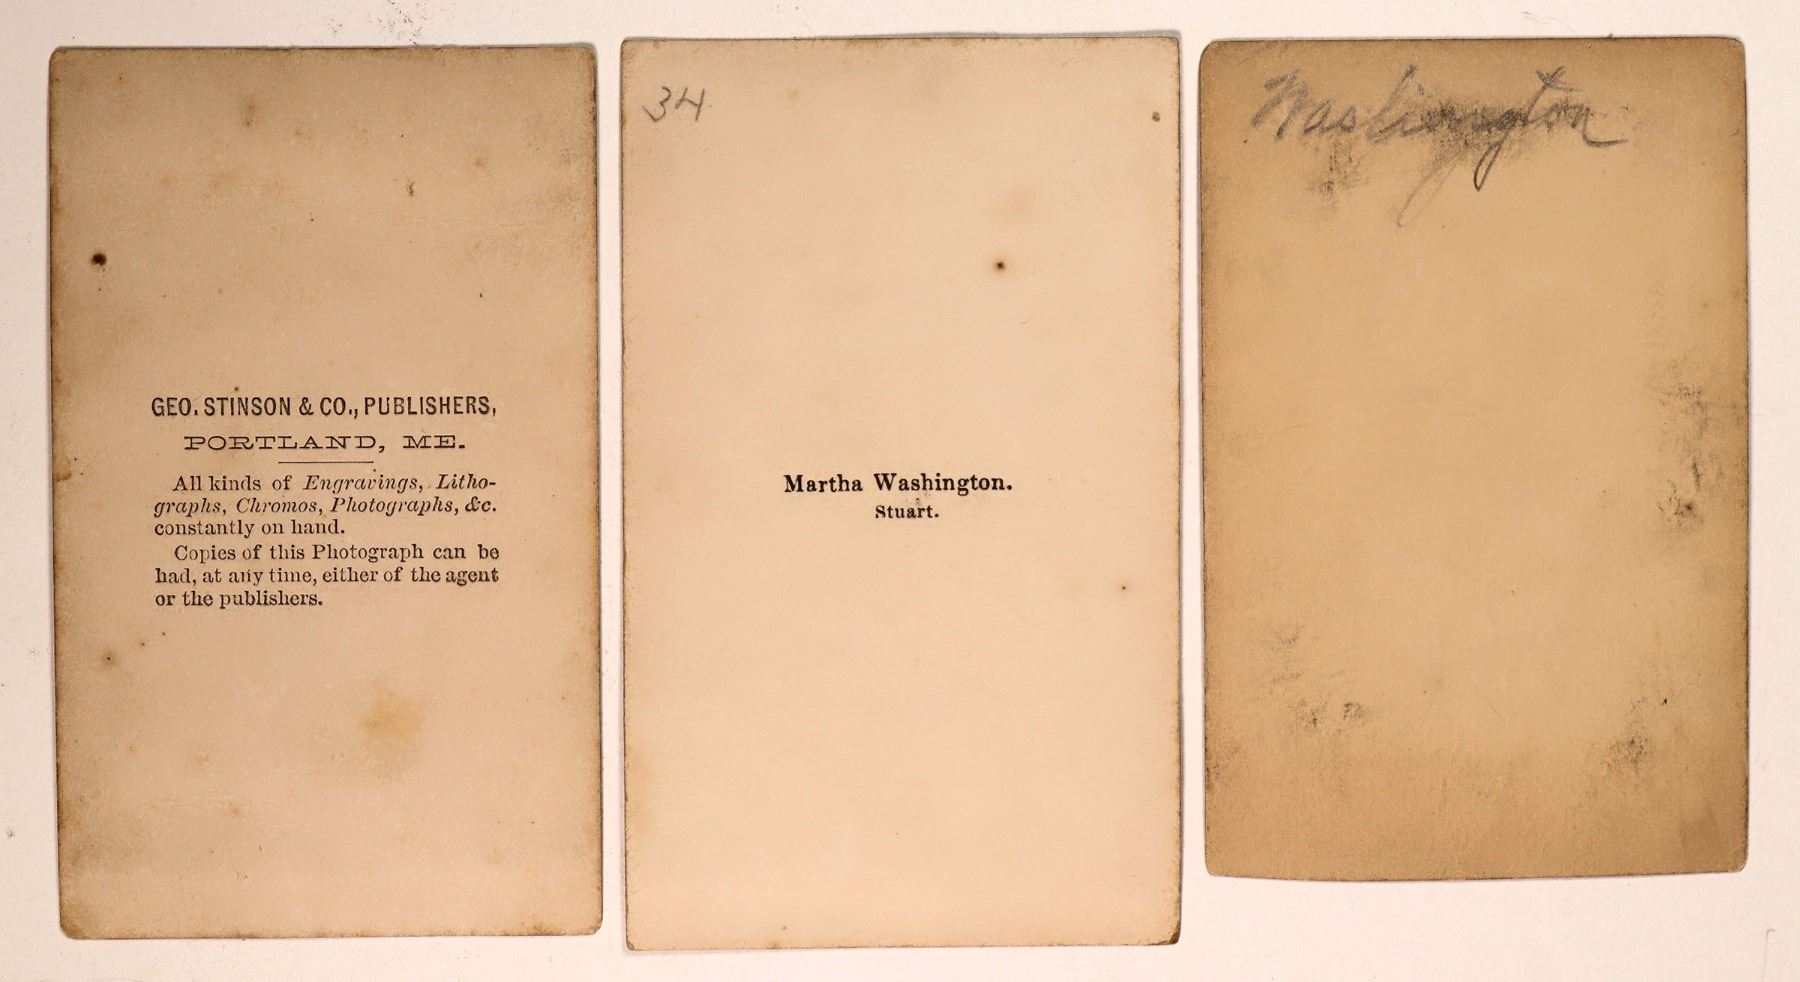 GEO. STINSON & CO., PUBLISHERS,
PORTLAND, ME.
All kinds of Engravings, Litho-
graphs, Chromos, Photographs, &c.
constantly on hand.
Copies of this Photograph can be
had, at any time, either of the agent
or the publishers.
34
Martha Washington.
Stuart.
Washington